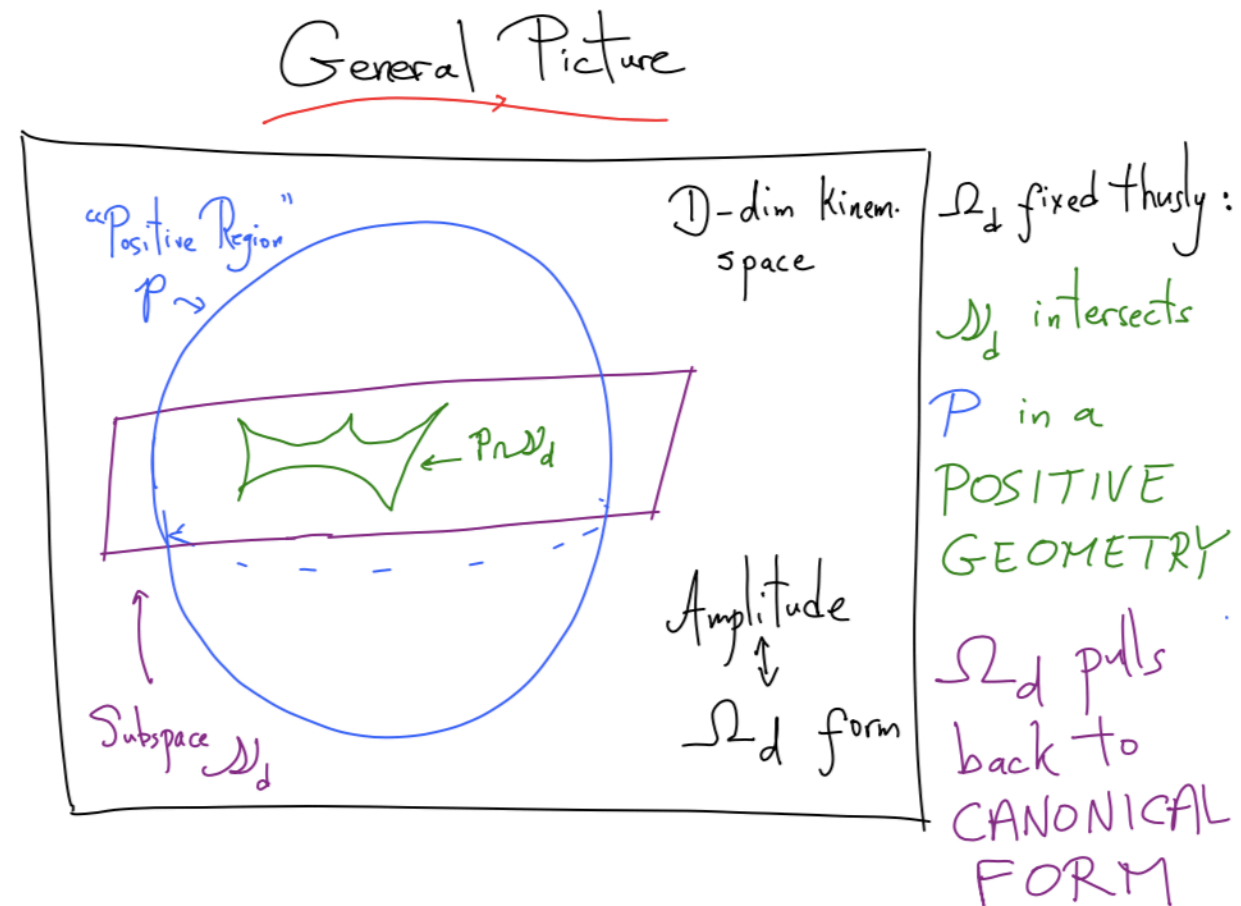 General Picture
"Positive Region"
P
D-dim Kinem.
space
P∩𝒩_d
Amplitude
↕
Ω_d form
Subspace 𝒩_d
Ω_d fixed thusly:
𝒩_d intersects
P in a
POSITIVE
GEOMETRY
Ω_d pulls
back to
CANONICAL
FORM